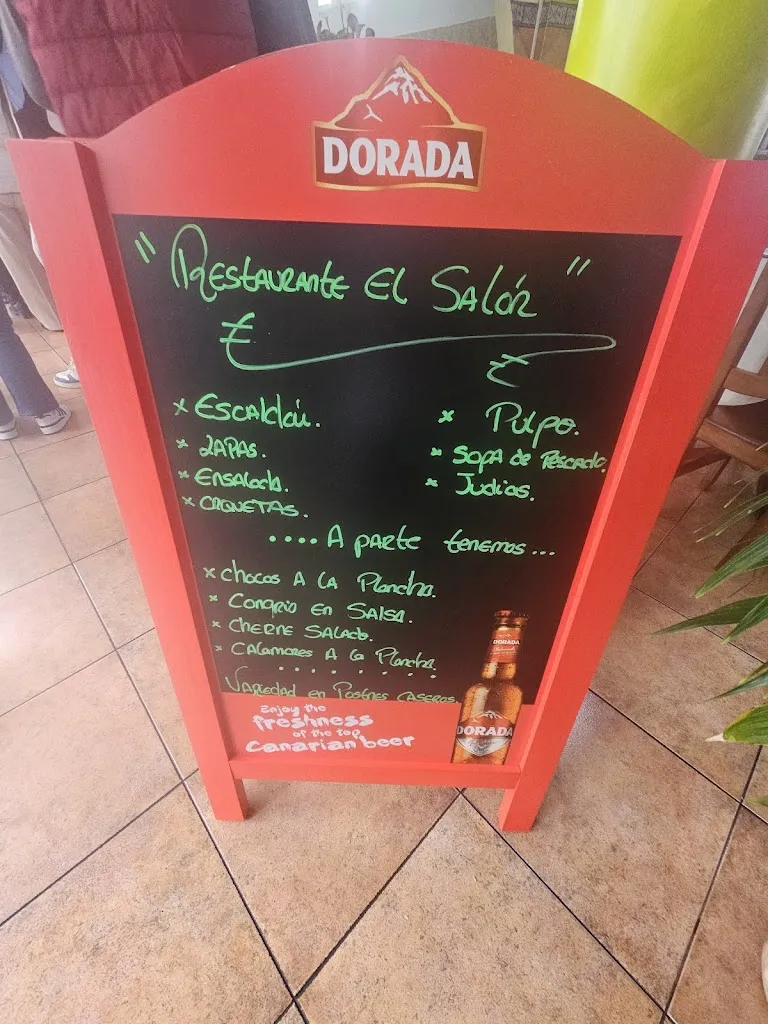 DORADA
"Restaurante El Salón"
x Escaldón.
x LAPAS.
x Ensalada.
x CROQUETAS.
x Pulpo.
x Sopa de Pescado.
x Judias.
.... A parte tenemos...
x Chocos A la Plancha.
x Congrio en Salsa.
x CHERNE SALADO.
x CALAMARES A la Plancha.
Variedad en Postres CASEROS.
Enjoy the
freshness
of the top
Canarian beer
DORADA
DORADA